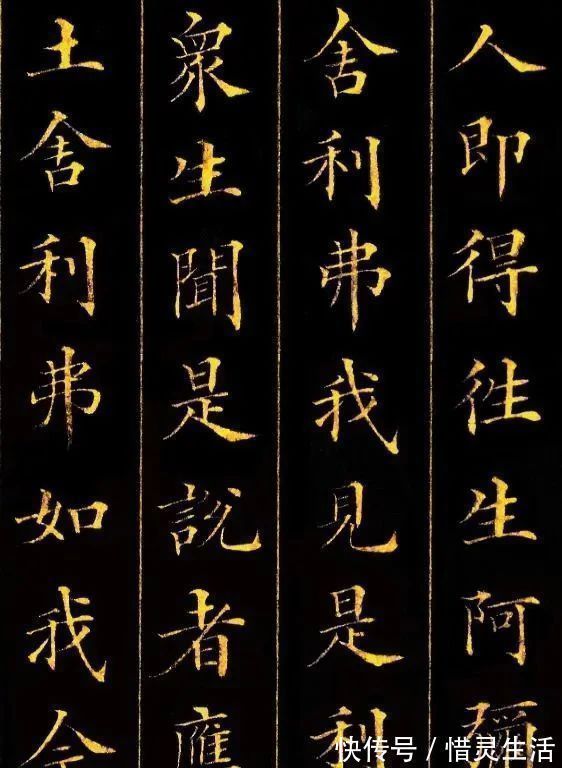 人即得徃生阿彌
舍利弗我見是利
衆生聞是說者應
土舍利弗如我今
快传号 / 惜灵生活